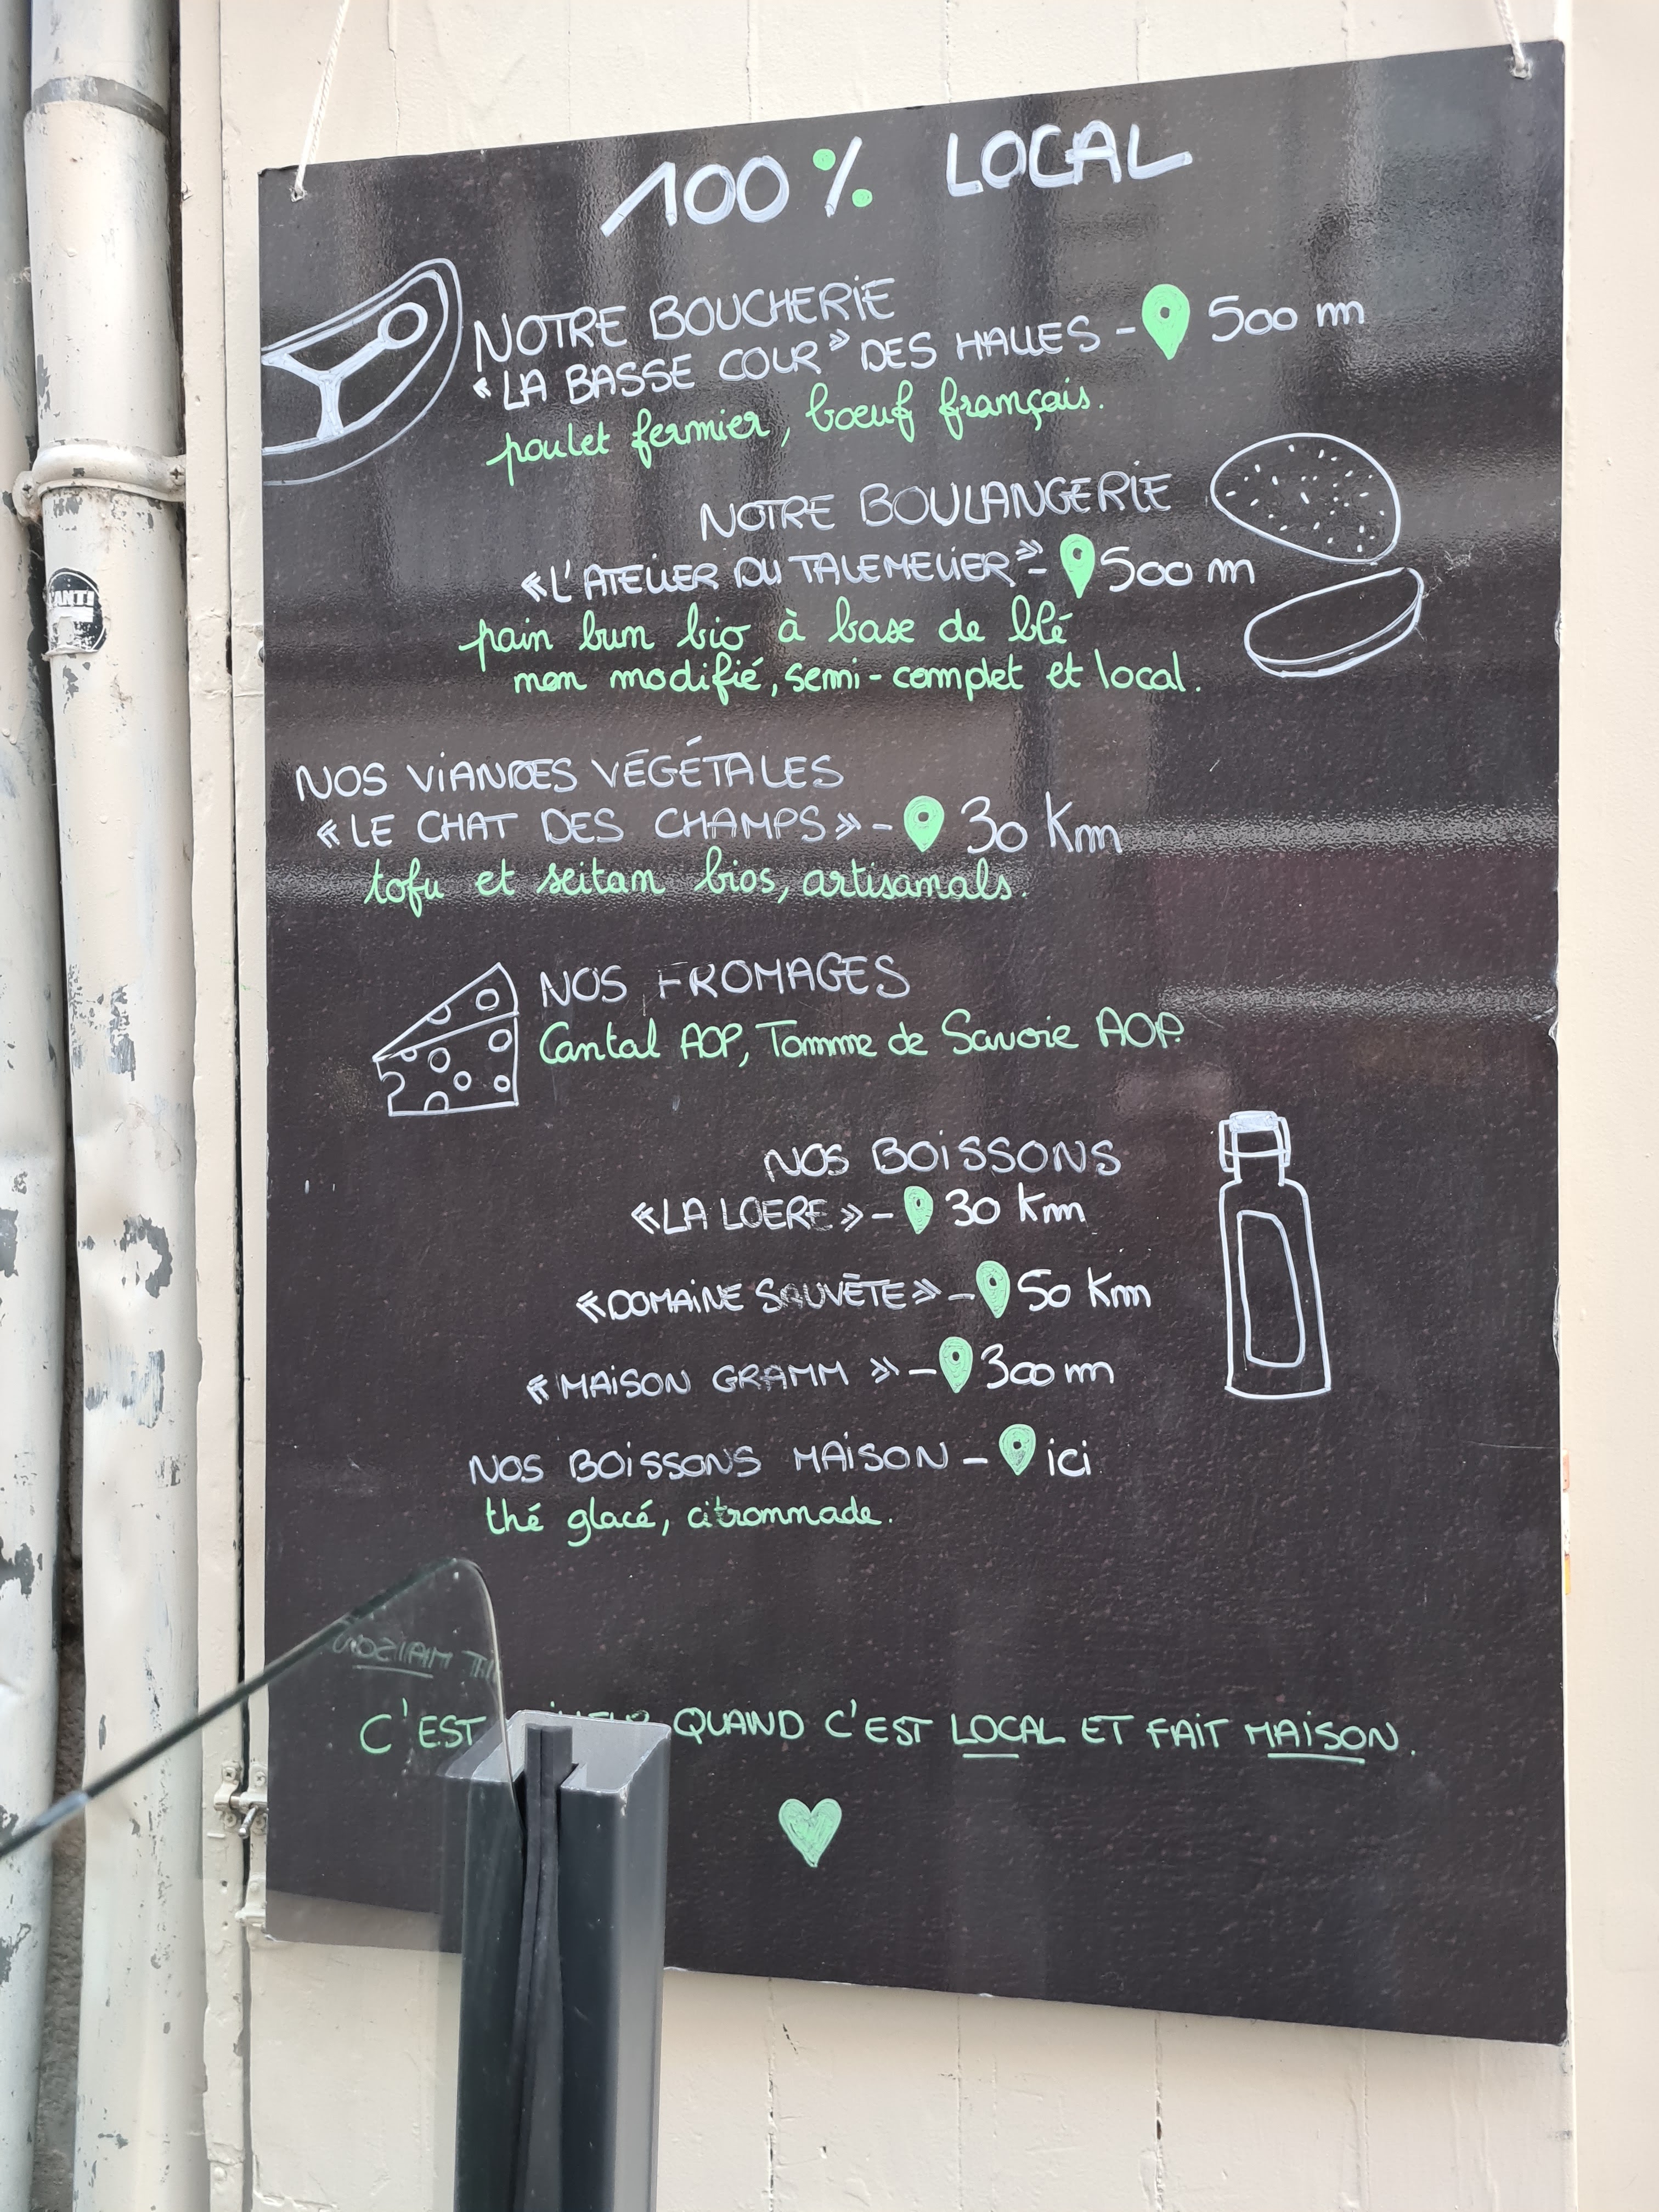 100% LOCAL
NOTRE BOUCHERIE
«LA BASSE COUR» DES HALLES - 500 m
poulet fermier, boeuf français.
NOTRE BOULANGERIE
«L'ATELIER DU TALEMELIER» - 500 m
pain bun bio à base de blé
non modifié, semi-complet et local.
NOS VIANDES VÉGÉTALES
«LE CHAT DES CHAMPS» - 30 Km
tofu et seitan bios, artisanals.
NOS FROMAGES
Cantal AOP, Tomme de Savoie AOP.
NOS BOISSONS
«LA LOERE» - 30 Km
«DOMAINE SAUVÈTE» - 50 Km
«MAISON GRAMM» - 300 m
NOS BOISSONS MAISON - ici
thé glacé, citronnade.
C'EST QUAND C'EST LOCAL ET FAIT MAISON.
ANTI